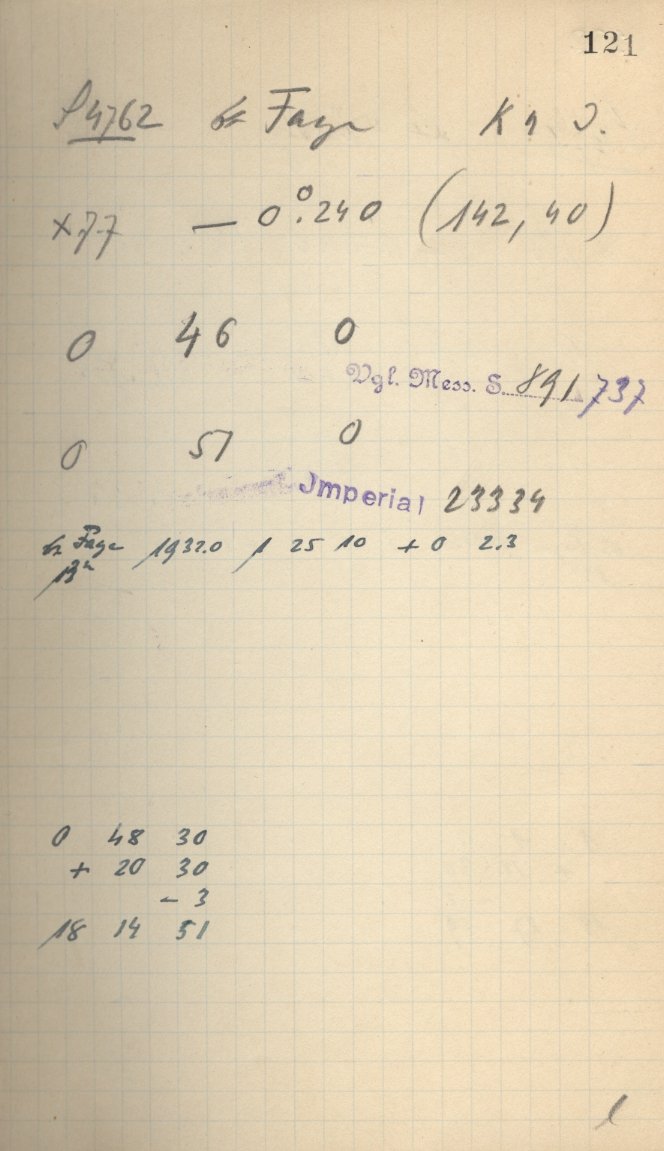 121
S4762 Fage K n J.
x77 — 0°.240 (142, 40)
0 46 0
Vgl. Mess. S. 891 737
0 51 0
Jmperial 23334
Fage 1932.0 1 25 10 + 0 2.3
13ᵐ
0 48 30
+ 20 30
- 3
18 14 51